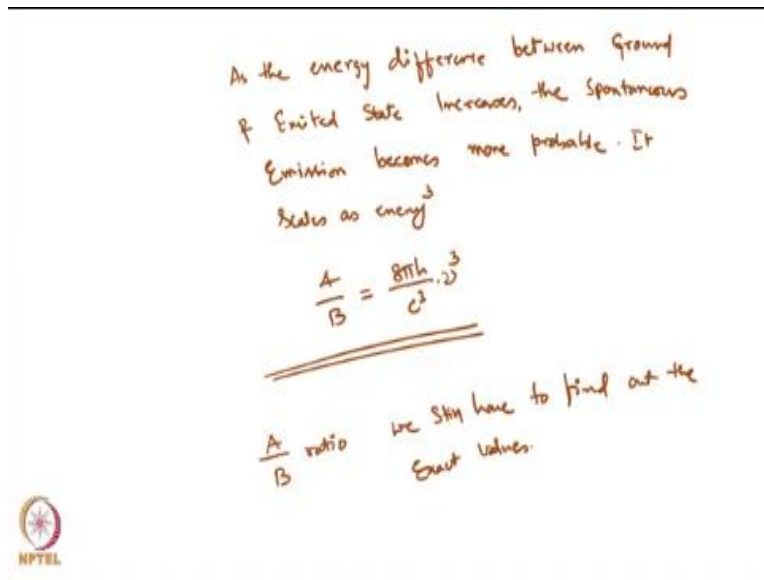 As the energy difference between Ground
& Exited State Increases, the Spontaneous
Emission becomes more probable. It
Scales as energy³
A/B = 8πh/c³ · ν³
A/B ratio we still have to find out the
Exact values.
NPTEL